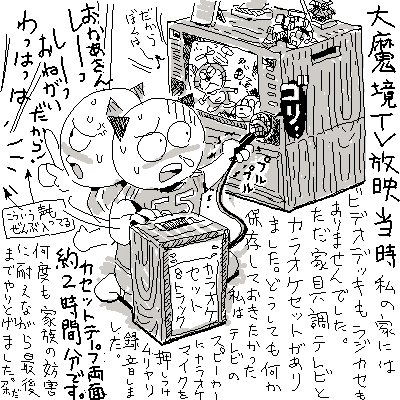 大魔境TV放映当時
私の家には
ビデオデッキもラジカセも
ありませんでした。
ただ家具調テレビと
カラオケセットがあり
ました。どうしても何か
保存しておきたかった
私はテレビの
スピーカー
にカラオケ
マイクを
押しつけ
ムリヤリ
録音しま
した。
カセットテープ両面
約2時間分です。
何度も家族の妨害
に耐えながら最後
までやりとげました。
だから
ぼくは
おかあさん
しーーっ
しーーっ
おねがい
だから!
わっはっは
こういう声も
ぜんぶ入ってる
プル
プル
カラオケ
セット
8トラック